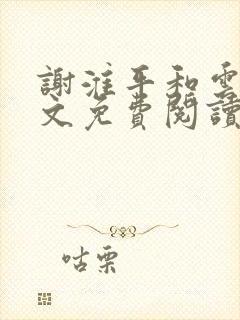 謝淮平和雲
文免費閱讀
咕栗